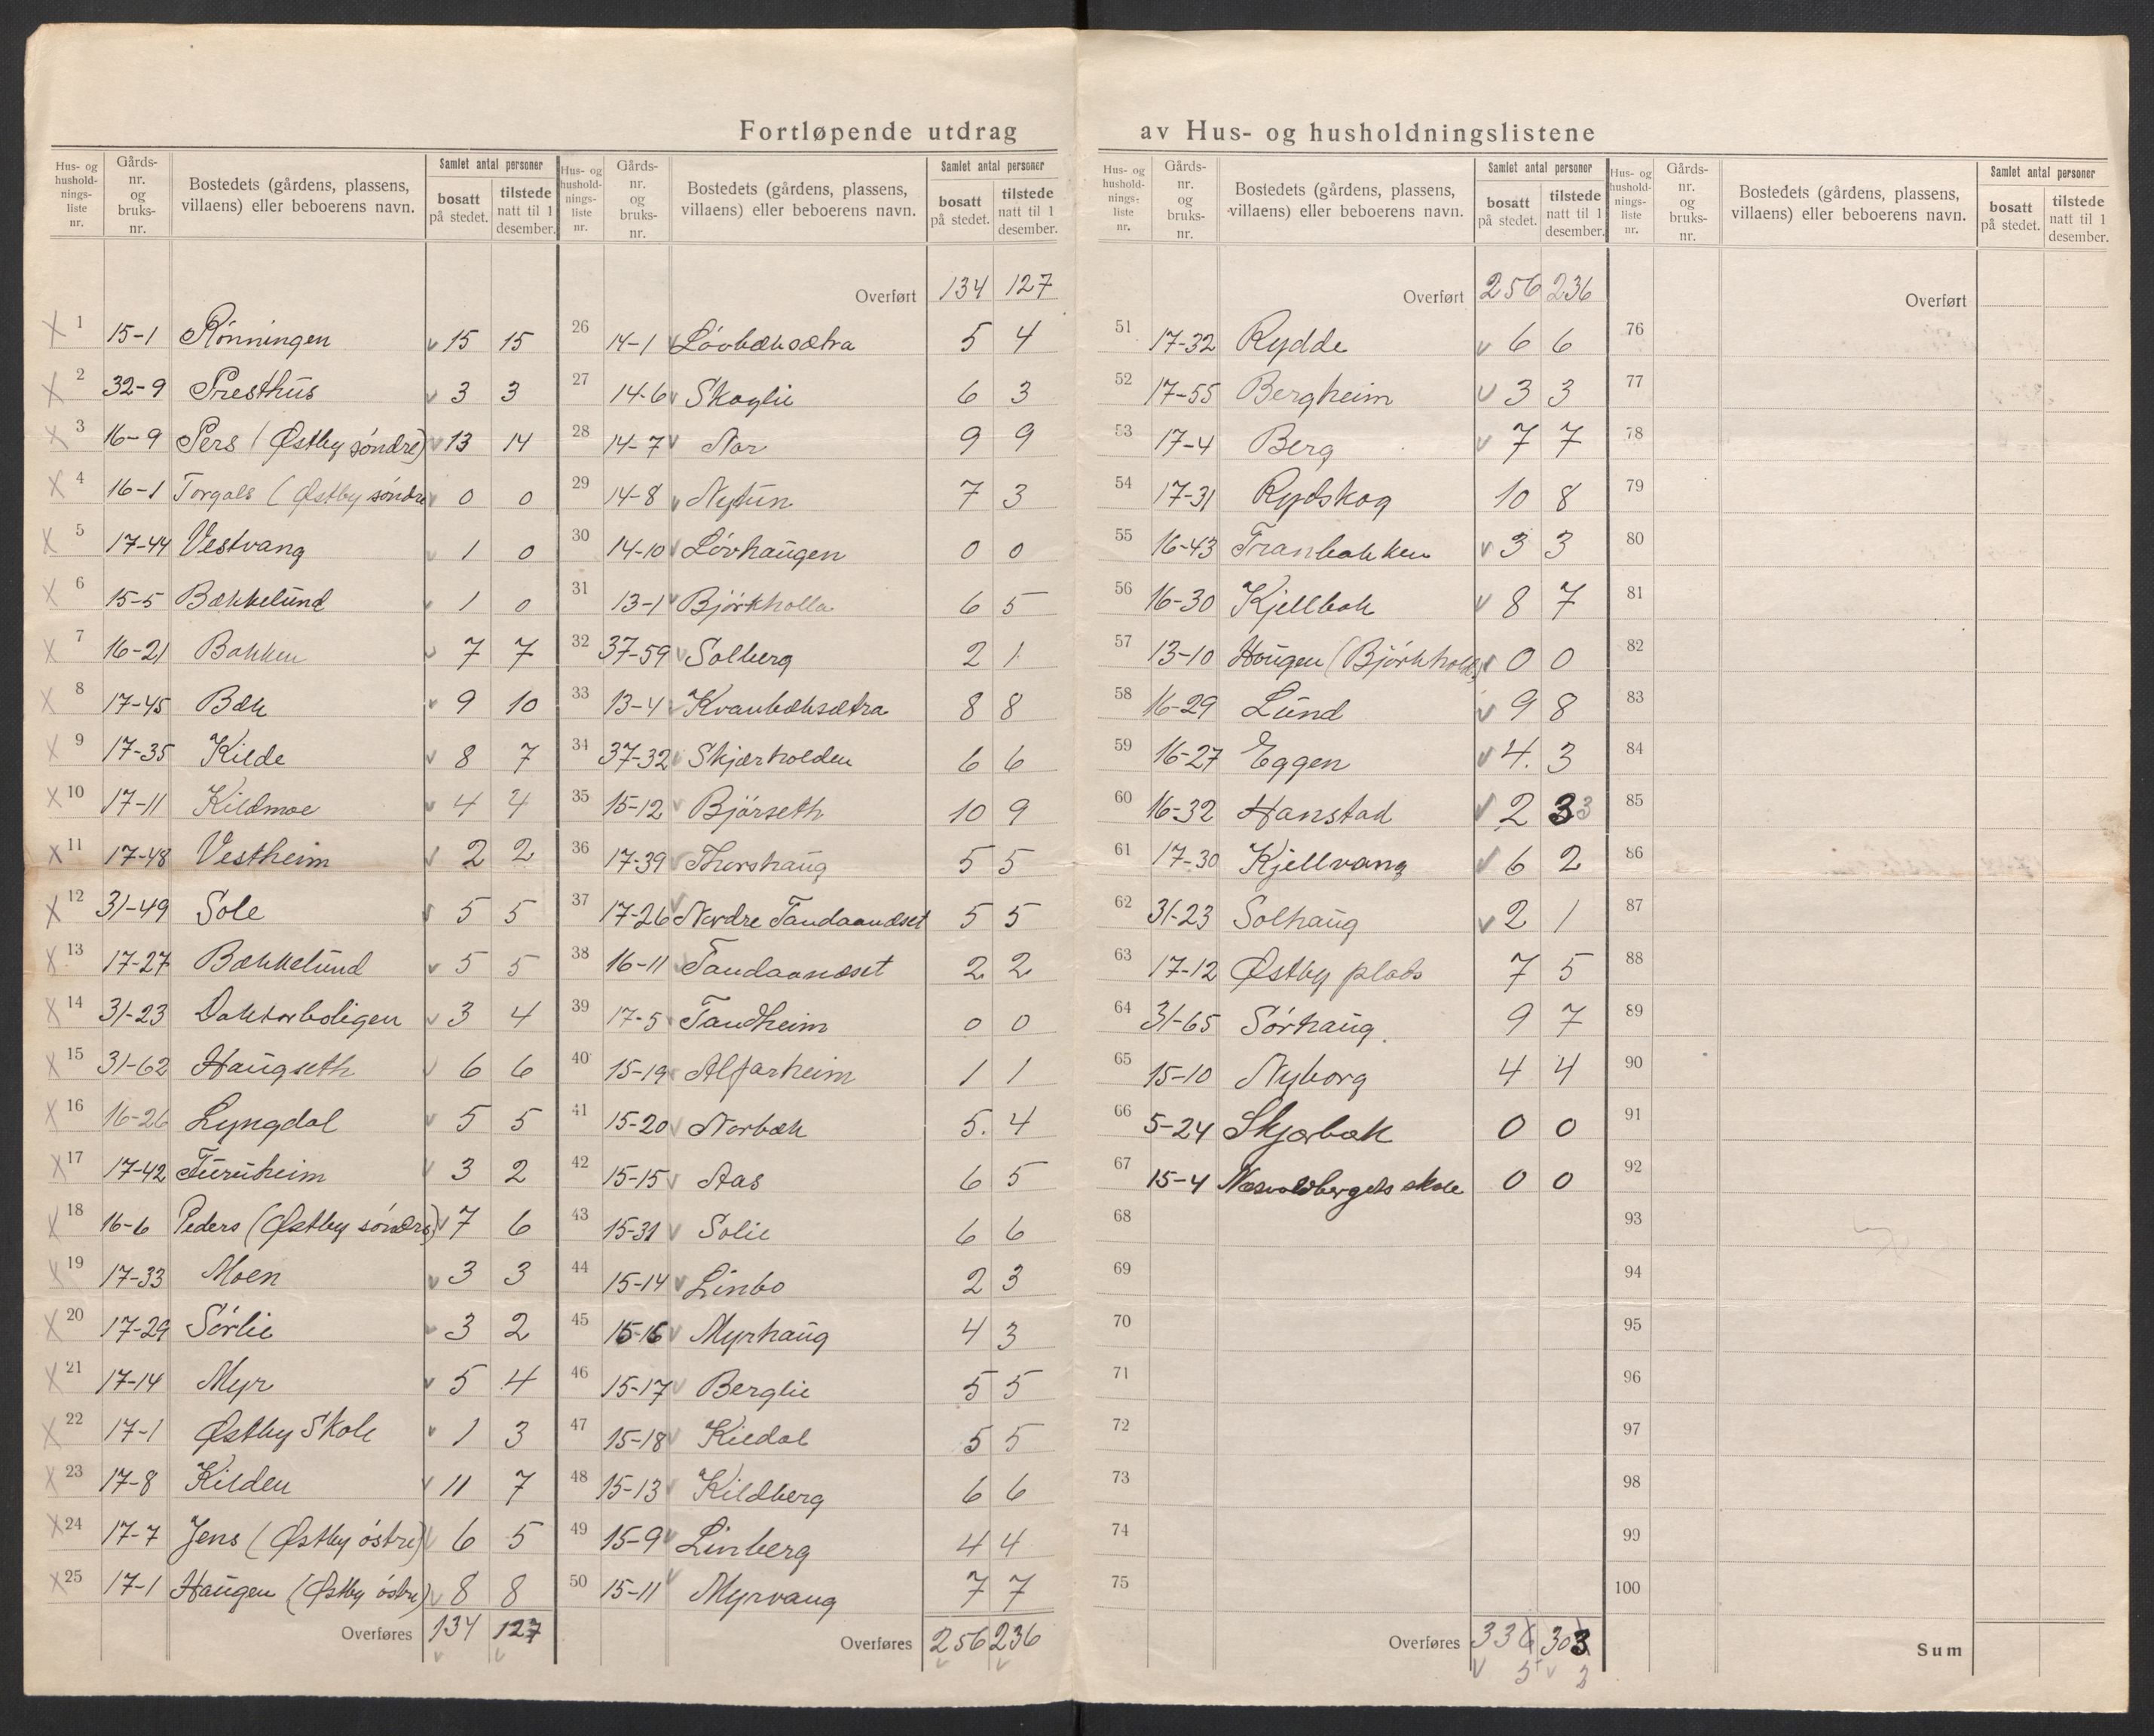 Fortløpende utdrag av Hus- og husholdningslistene
Hus- og husholdnings-liste nr. | Gårds-nr. og bruks-nr. | Bostedets (gårdens, plassens, villaens) eller beboerens navn. | Samlet antal personer | bosatt på stedet. | tilstede natt til 1 desember.
X 1 15-1 Rønningen v 15 15
X 2 32-9 Presthus v 3 3
X 3 16-9 Pers (Østby søndre) v 13 14
X 4 16-1 Torgals (Østby søndre v 0 0
X 5 17-44 Vestvang v 1 0
X 6 15-5 Bækkelund v 1 0
X 7 16-21 Bakken v 7 7
X 8 17-45 Bæk v 9 10
X 9 17-35 Kilde v 8 7
X 10 17-11 Kildmoe v 4 4
X 11 17-48 Vestheim v 2 2
X 12 31-49 Sole v 5 5
X 13 17-27 Bækkelund v 5 5
X 14 31-23 Doktorboligen v 3 4
X 15 31-62 Haugseth v 6 6
X 16 16-26 Lyngdal v 5 5
X 17 17-42 Furuheim v 3 2
X 18 16-6 Peders (Østby søndre) v 7 6
X 19 17-33 Moen v 3 3
X 20 17-29 Sørlie v 3 2
X 21 17-14 Myr v 5 4
X 22 17-1 Østby Skole v 1 3
X 23 17-8 Kilden v 11 7
X 24 17-7 Jens (Østby østre) v 6 5
X 25 17-1 Haugen (Østby østre) v 8 8
Overføres 134 127
v v
Hus- og hushold-nings-liste nr. | Gårds-nr. og bruks-nr. | Bostedets (gårdens, plassens, villaens) eller beboerens navn. | Samlet antal personer | bosatt på stedet. | tilstede natt til 1 desember.
Overført 134 127
26 14-1 v Løvbæksætra 5 4
27 14-6 v Skoglie 6 3
28 14-7 v Nor 9 9
29 14-8 v Nytun 7 3
30 14-10 v Løvhaugen 0 0
31 13-1 v Bjørkholla 6 5
32 37-59 v Solberg 2 1
33 13-4 v Kvanbæksætra 8 8
34 37-32 v Skjærholden 6 6
35 15-12 v Bjørseth 10 9
36 17-39 v Thorshaug 5 5
37 17-26 v Nordre Tandaanæset 5 5
38 16-11 v Tandaanæset 2 2
39 17-5 v Tandheim 0 0
40 15-19 v Alfarheim 1 1
41 15-20 v Norbæk 5. 4
42 15-15 v Aas 6 5
43 15-31 v Solie 6 6
44 15-14 v Linbo 2 3
45 15-16 v Myrhaug 4 3
46 15-17 v Berglie 5 5
47 15-18 v Kildal 5 5
48 15-13 v Kildberg 6 6
49 15-9 v Linberg 4 4
50 15-11 v Myrvang 7 7
Overføres 256 236
v v
Hus- og hushold-nings-liste nr. | Gårds-nr. og bruks-nr. | Bostedets (gårdens, plassens, villaens) eller beboerens navn. | Samlet antal personer | bosatt på stedet. | tilstede natt til 1 desember.
Overført 256 236
51 17-32 Rydde v 6 6
52 17-55 Bergheim v 3 3
53 17-4 Berg v 7 7
54 17-31 Rydskog 10 8
55 16-43 Tranbakken v 3 3
56 16-30 Kjellbæk v 8 7
57 13-10 Haugen (Bjørkholla) v 0 0
58 16-29 Lund v 9 8
59 16-27 Eggen v 4. 3
60 16-32 Hanstad v 2 3 3
61 17-30 Kjellvang v 6 2
62 31-23 Solhaug v 2 1
63 17-12 Østby plads 7 5
64 31-65 Sørhaug 9 7
65 15-10 Nyborg 4 4
66 5-24 Skjærbæk 0 0
67 15-4 Næsvoldbergets skole 0 0
68
69
70
71
72
73
74
75
Overføres 336 303
v 5 v 3
Hus- og hushold-nings-liste nr. | Gårds-nr. og bruks-nr. | Bostedets (gårdens, plassens, villaens) eller beboerens navn. | Samlet antal personer | bosatt på stedet. | tilstede natt til 1 desember.
Overført
76
77
78
79
80
81
82
83
84
85
86
87
88
89
90
91
92
93
94
95
96
97
98
99
100
Sum